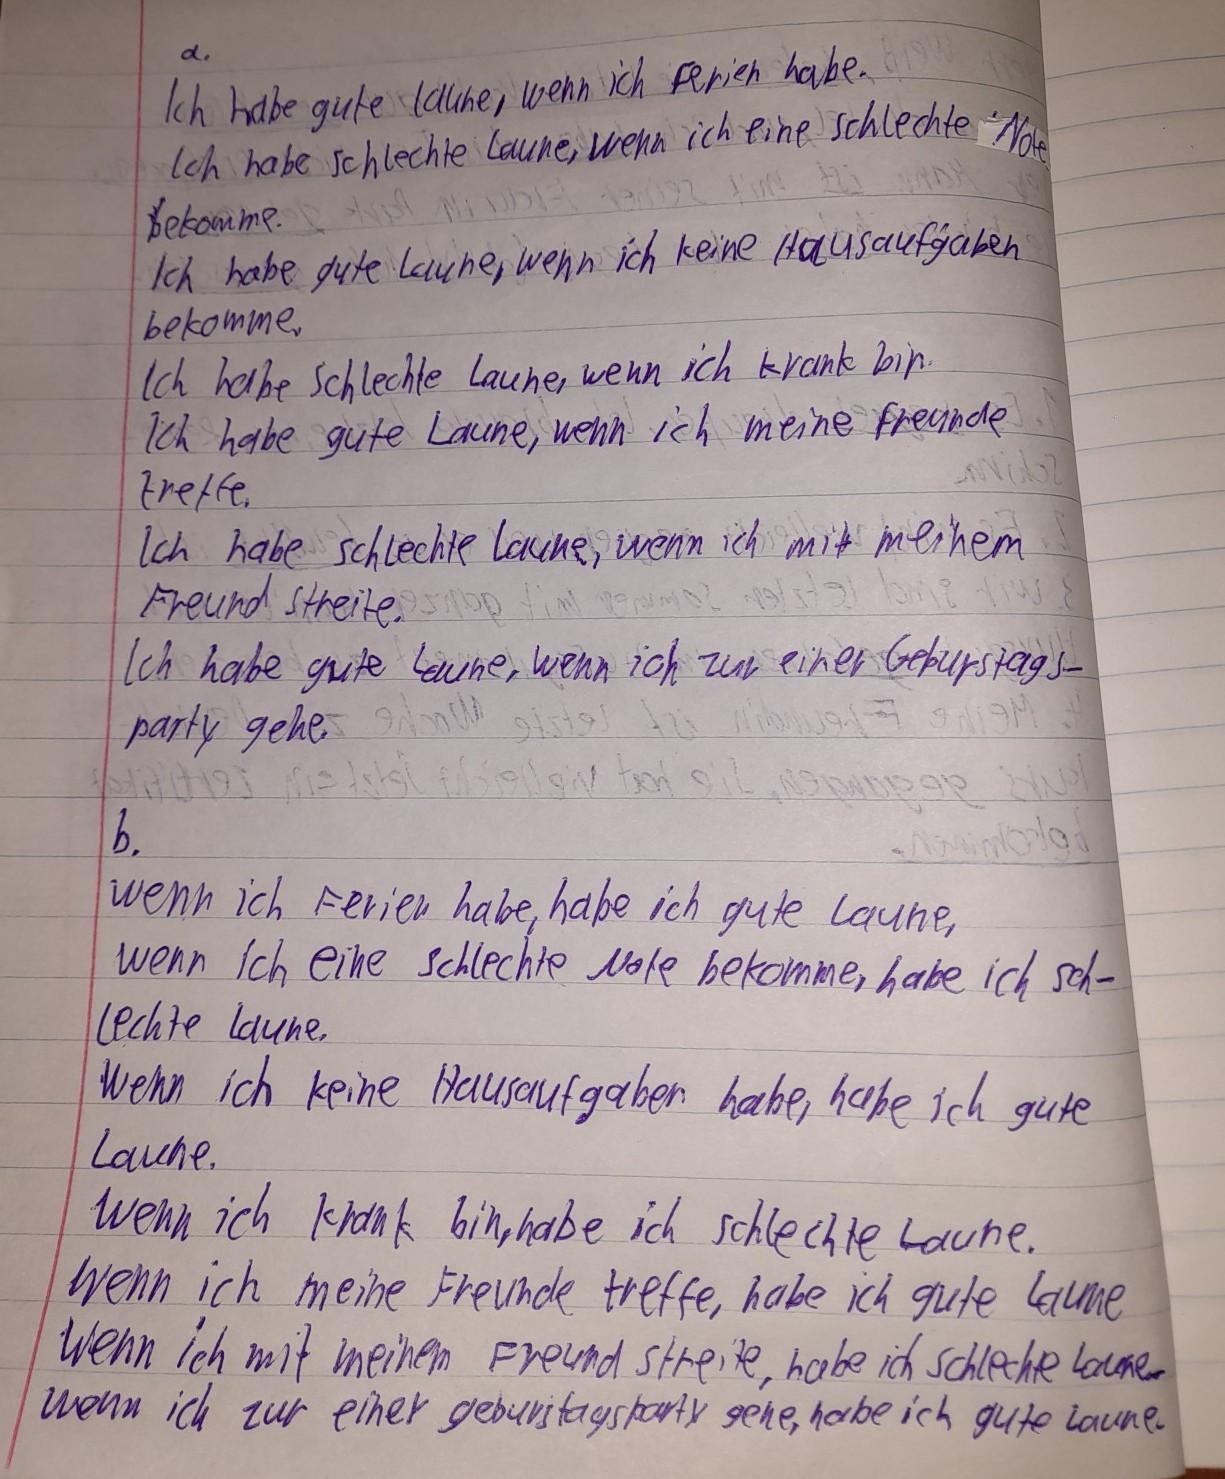 a.
Ich habe gute Laune, wenn ich Ferien habe.
Ich habe schlechte Laune, wenn ich eine schlechte Note
bekomme.
Ich habe gute Laune, wenn ich keine Hausaufgaben
bekomme.
Ich habe schlechte Laune, wenn ich krank bin.
Ich habe gute Laune, wenn ich meine Freunde
treffe.
Ich habe schlechte Laune, wenn ich mit meinem
Freund streite.
Ich habe gute Laune, wenn ich zur einer Geburstags-
party gehe.
b.
wenn ich Ferien habe, habe ich gute Laune,
wenn ich eine schlechte Note bekomme, habe ich sch-
lechte Laune.
Wenn ich keine Hausaufgaben habe, habe ich gute
Laune.
Wenn ich krank bin, habe ich schlechte Laune.
Wenn ich meine Freunde treffe, habe ich gute Laune
Wenn ich mit meinem Freund streite, habe ich schlechte Laune.
wenn ich zur einer geburstagsparty gehe, habe ich gute Laune.